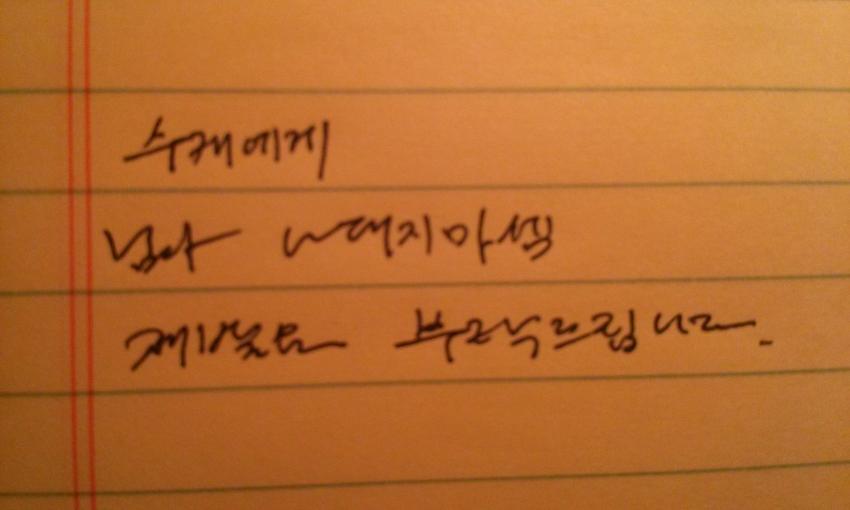 수재에게
넘나 나대지마셈
제발요 부탁드립니다.